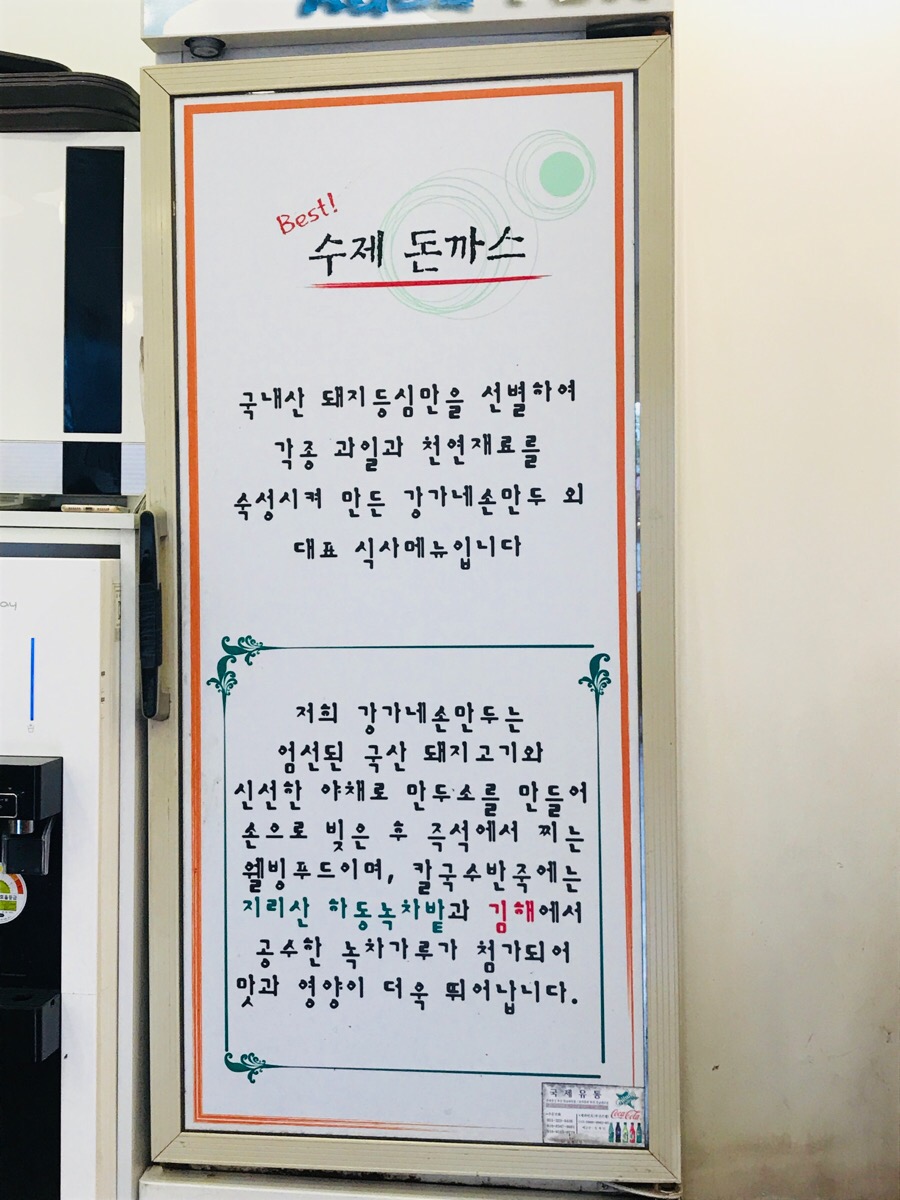 Best!
수제 돈까스
국내산 돼지등심만을 선별하여
각종 과일과 천연재료를
숙성시켜 만든 강가네손만두 외
대표 식사메뉴입니다
저희 강가네손만두는
엄선된 국산 돼지고기와
신선한 야채로 만두소를 만들어
손으로 빚은 후 즉석에서 찌는
웰빙푸드이며, 칼국수반죽에는
지리산 하동녹차밭과 김해에서
공수한 녹차가루가 첨가되어
맛과 영양이 더욱 뛰어납니다.
국제유통
Coca-Cola